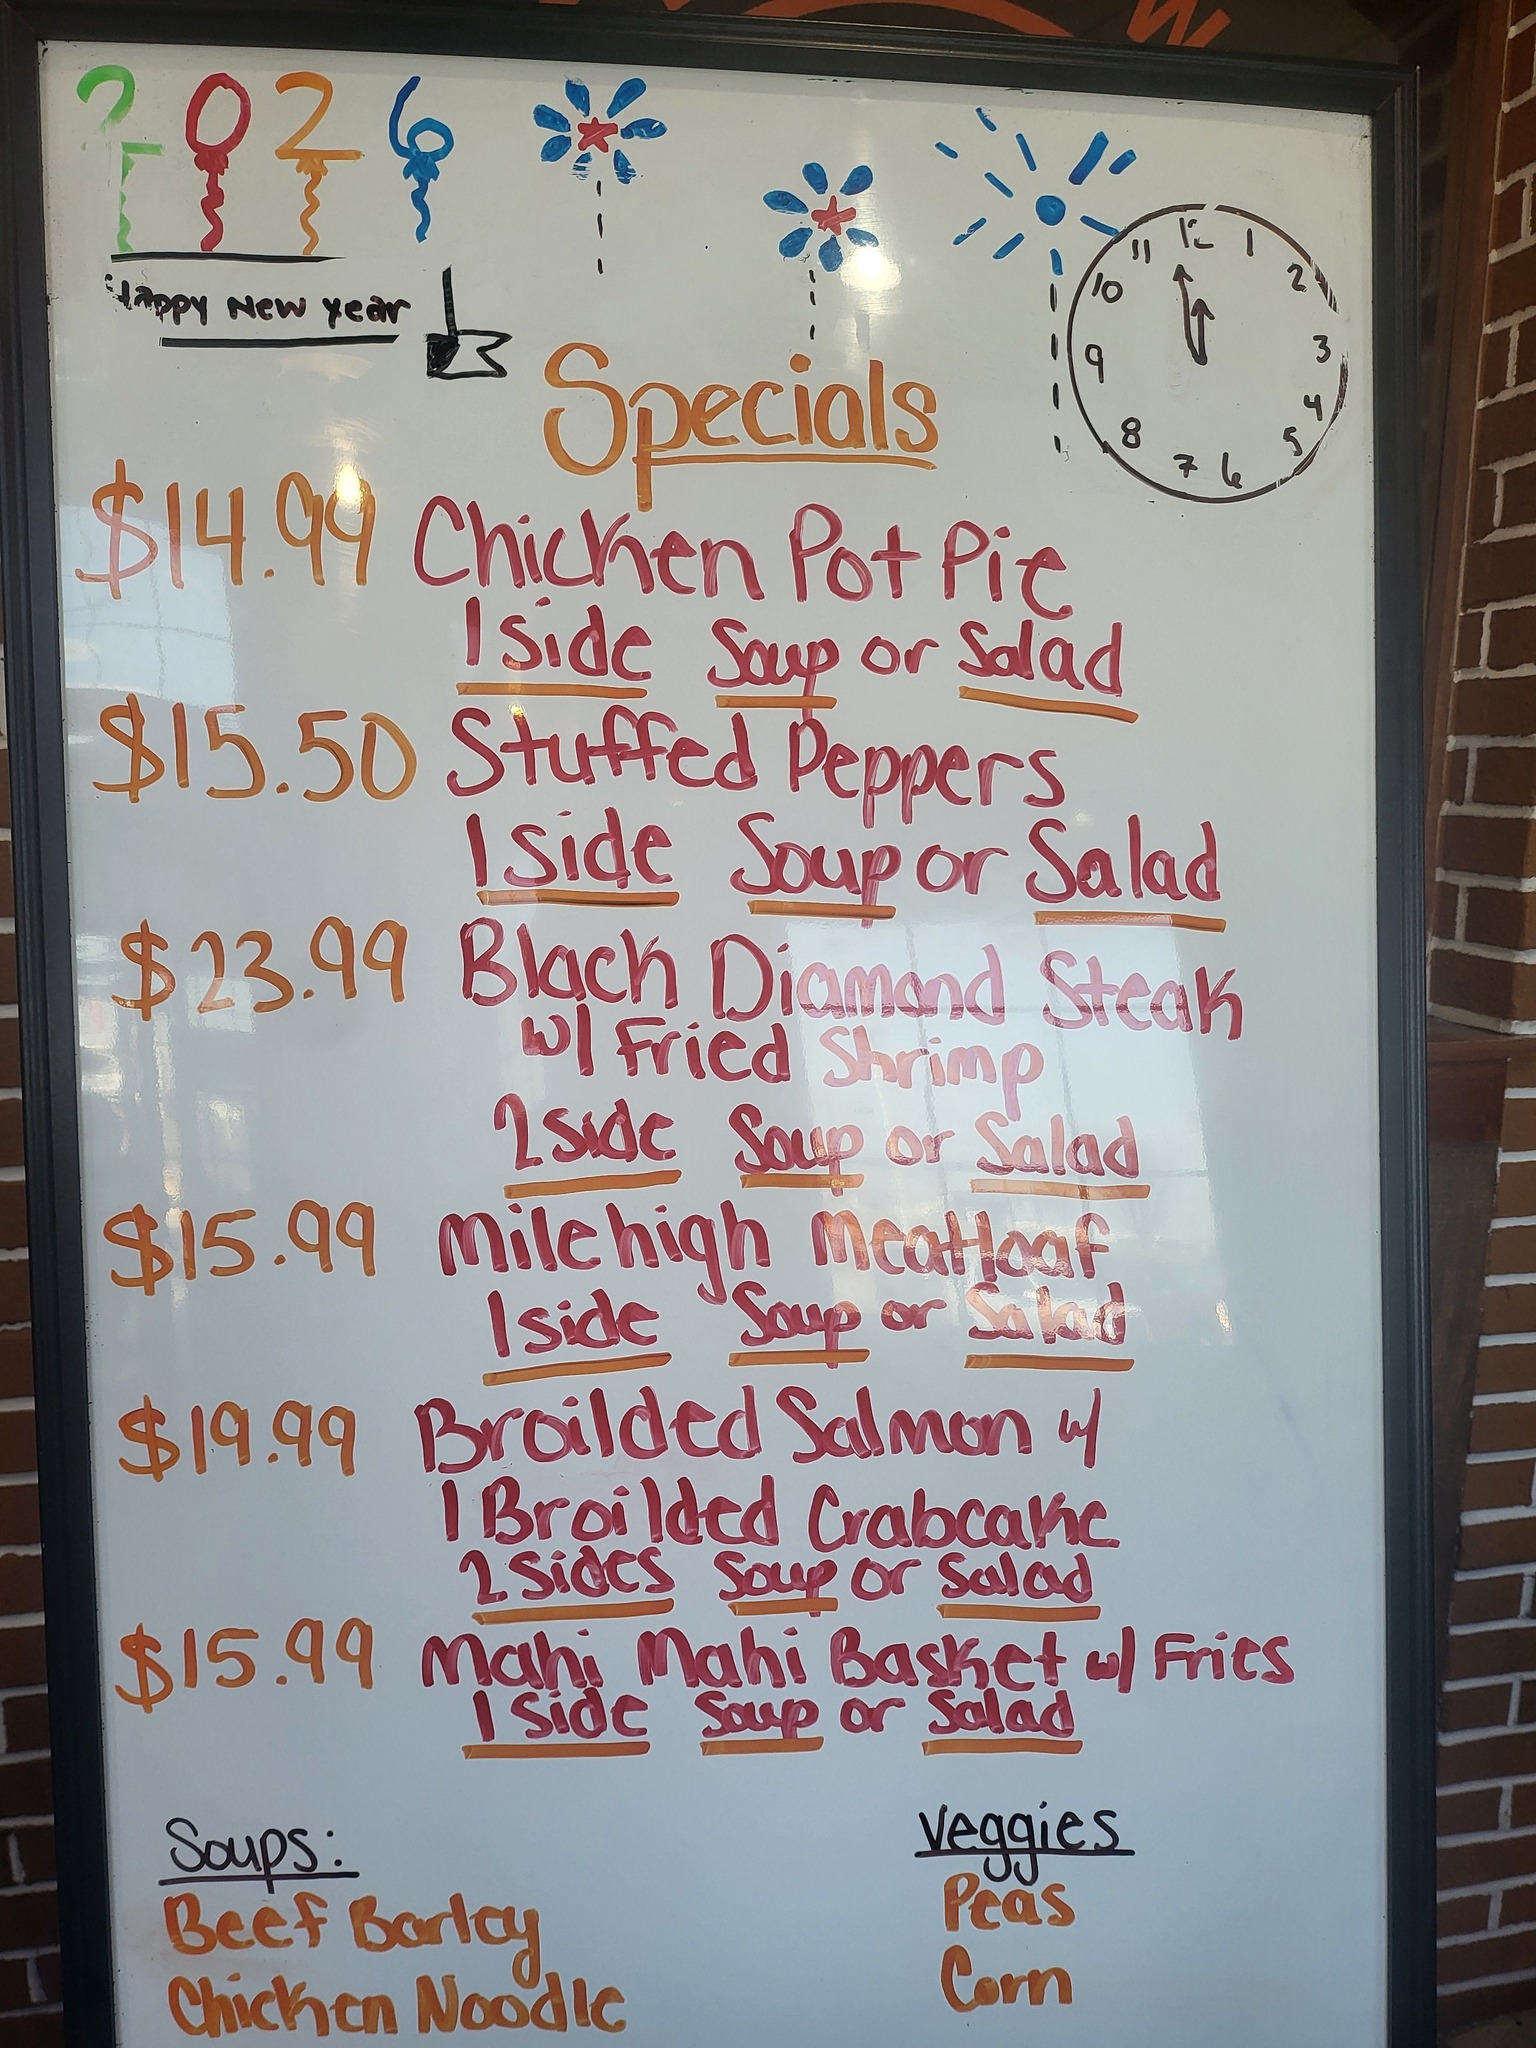 2026
Happy New Year
12
11
1
10
2
9
3
8
4
7
6
5
Specials
$14.99 Chicken Pot Pie
1 side Soup or Salad
$15.50 Stuffed Peppers
1 side Soup or Salad
$23.99 Black Diamond Steak
w/ Fried Shrimp
2 side Soup or Salad
$15.99 Milehigh Meatloaf
1 side Soup or Salad
$19.99 Broilded Salmon w/
1 Broilded Crabcake
2 sides Soup or Salad
$15.99 Mahi Mahi Basket w/ Fries
1 side Soup or Salad
Soups:
Beef Barley
Chicken Noodle
Veggies
Peas
Corn